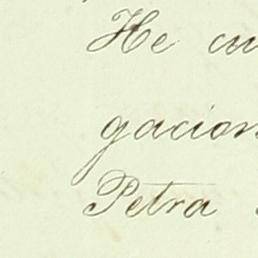 He cu
gacion
Petra